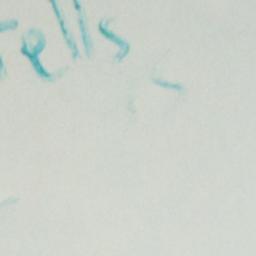 Fells -